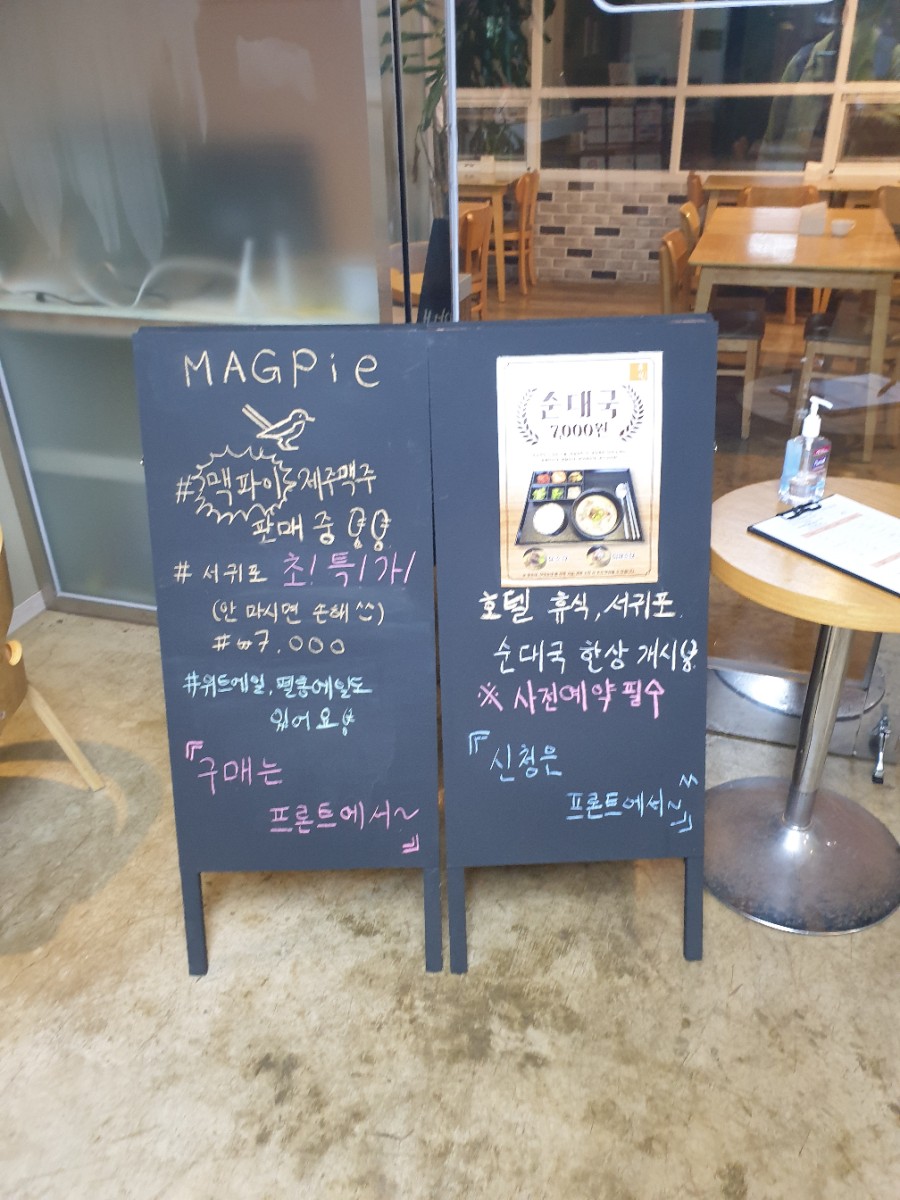 MAGPie
#맥파이 제주맥주
판매 중
# 서귀포 초! 특! 가!
(안 마시면 손해 ^^)
#₩7.000
#위트에일, 필롱에일도
있어요!
『구매는
프론트에서~』
순대국
7,000원
호텔 휴식, 서귀포.
순대국 한상 개시!
※ 사전예약 필수
『신청은
프론트에서~』